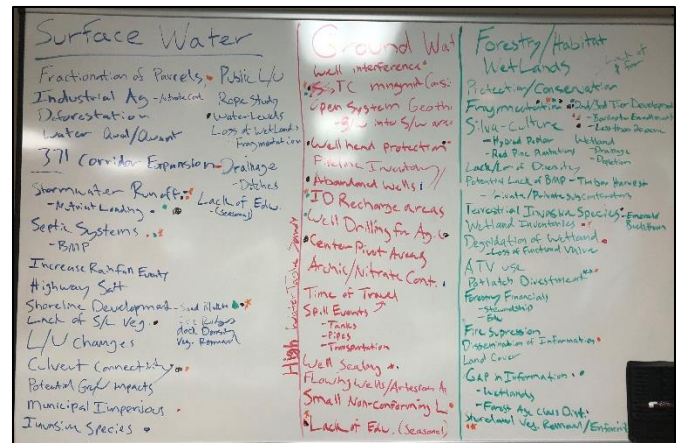 Surface Water
Fractionation of Parcels
Industrial Ag - Nitrate Cont.
Deforestation
Water Qual/Quant
371 Corridor Expansion
Stormwater Runoff
-Nutrient Loading
Septic Systems
-BMP
Increase Rainfall Events
Highway Salt
Shoreline Development
Lack of S/L Veg.
L/U Changes
Culvert Connectivity
Potential Impacts
Municipal Impervious
Invasive Species
Public L/U
Rope Study
Water Levels
Loss of Wetlands
Fragmentation
Drainage
-Ditches
Lack of Edu.
-(Seasonal)
-Sand
dock Density
Veg. Removal
Ground Wat
Well interference
SSTC mngmnt
Open System Geoth
into S/W area
Well head protection
Inventory
Abandoned wells
ID Recharge areas
Well Drilling for Ag.
Center Pivot Areas
/Nitrate Cont.
Time of Travel
Spill Events
-Tanks
-Pipes
-Transportation
Well Sealing
Flowing Wells/Artesian
Small Non-Conforming L
Lack of Edu. (Seasonal)
High Water Table
Forestry/Habitat
Wetlands
Protection/Conservation
Fragmentation - 2nd/3rd Tier Development
Silva-Culture
-Hybrid Poplar
-Red Pine Plantations
Wetland
-Drainage
-Depletion
Lack/Loss of Diversity
Potential Lack of BMP - Timber Harvest
-Private/Private subcontractors
Terrestrial Invasive Species - Emerald
Buckthorn
Wetland Inventories
Degradation of Wetland
-Loss of Functional Value
ATV use
Potlatch Divestment
Forestry Financials
-Stewardship
-Edu
Fire Supression
Dissemination of Information
Land Cover
GAP in Information
-Wetlands
-Forest Age Class Dist.
Shoreland Veg. Removal/